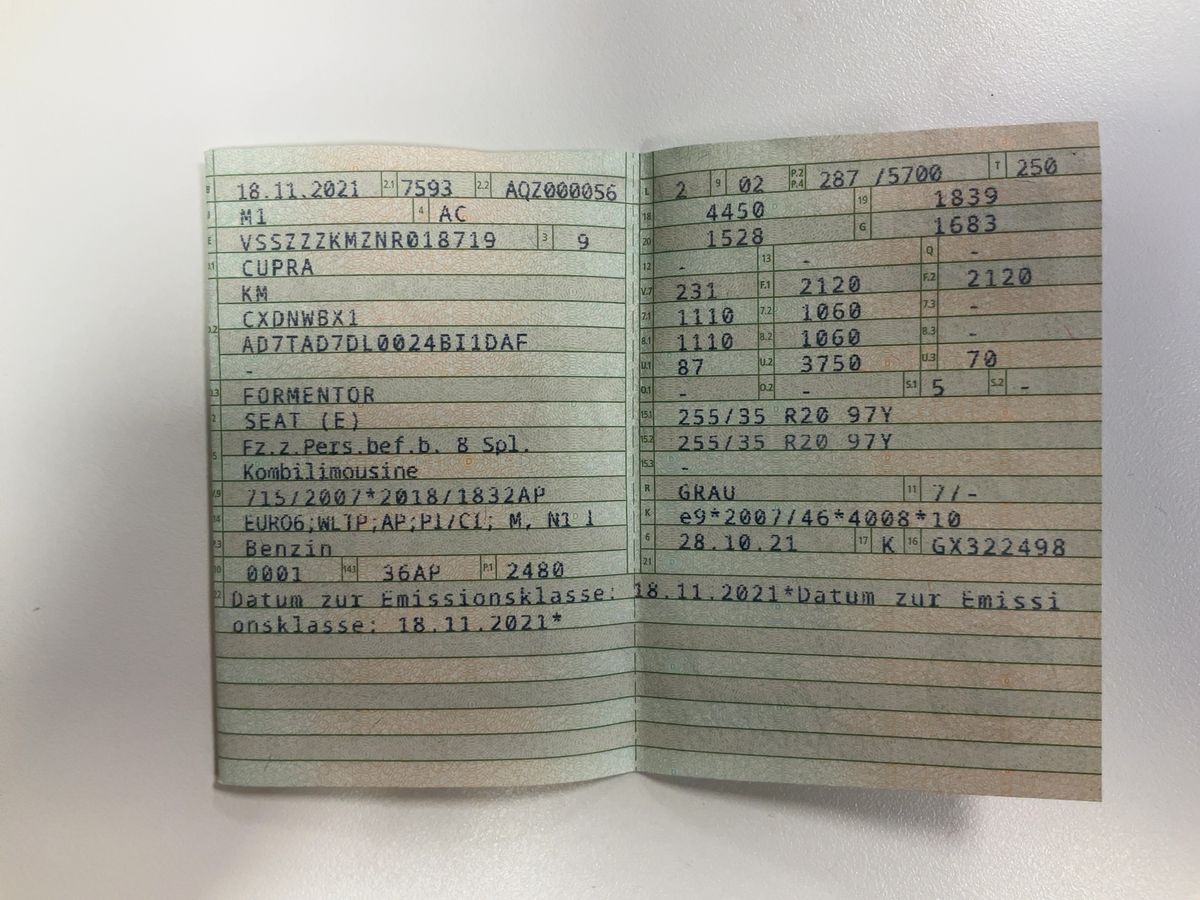 B 18.11.2021 2.1 7593 2.2 AQZ000056
J M1 4 AC
E VSSZZZKMZNR018719 3 9
CUPRA
KM
CXDNWBX1
AD7TAD7DL0024BI1DAF
-
FORMENTOR
SEAT (E)
Fz.z.Pers.bef.b. 8 Spl.
Kombilimousine
715/2007*2018/1832AP
EURO6;WLTP;AP;PI/CI; M, N1 I
Benzin
0001 14.1 36AP P.1 2480
22 Datum zur Emissionsklasse: 18.11.2021*Datum zur Emissi
onsklasse: 18.11.2021*
L 2 9 02 P.2 P.4 287 /5700 T 250
18 4450 19 1839
20 1528 G 1683
12 - 13 - Q -
V.7 231 F.1 2120 F.2 2120
7.1 1110 7.2 1060 7.3 -
8.1 1110 8.2 1060 8.3 -
U.1 87 U.2 3750 U.3 70
O.1 - O.2 - S.1 5 S.2 -
15.1 255/35 R20 97Y
15.2 255/35 R20 97Y
15.3 -
R GRAU 11 7/-
K e9*2007/46*4008*10
6 28.10.21 17 K 16 GX322498
21